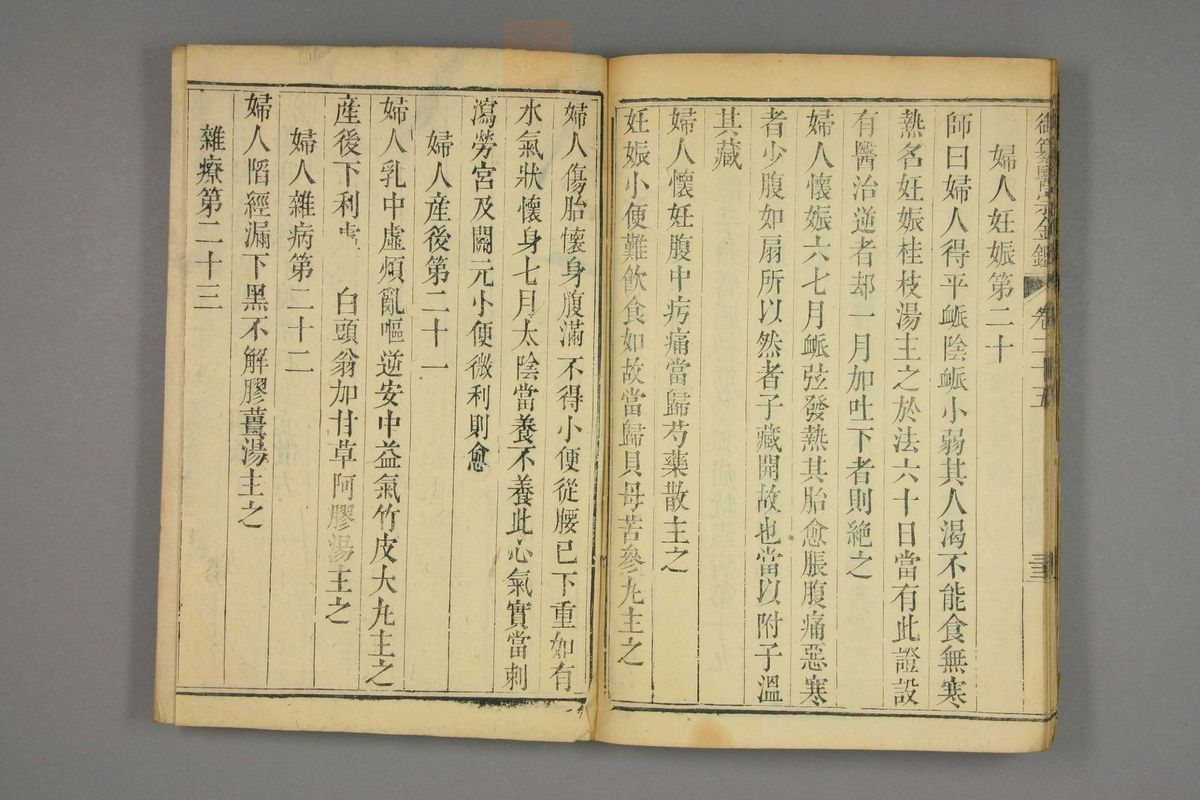 御纂醫宗金鑑 卷二十五 三三
婦人妊娠第二十
師曰婦人得平脈陰脈小弱其人渴不能食無寒
熱名妊娠桂枝湯主之於法六十日當有此證設
有醫治逆者却一月加吐下者則絶之
婦人懷娠六七月脈弦發熱其胎愈脹腹痛惡寒
者少腹如扇所以然者子藏開故也當以附子溫
其藏
婦人懷妊腹中㽲痛當歸芍藥散主之
妊娠小便難飲食如故當歸貝母苦參丸主之
婦人傷胎懷身腹滿不得小便從腰已下重如有
水氣狀懷身七月太陰當養不養此心氣實當刺
瀉勞宮及關元小便微利則愈
婦人産後第二十一
婦人乳中虛煩亂嘔逆安中益氣竹皮大丸主之
産後下利虛 白頭翁加甘草阿膠湯主之
婦人雜病第二十二
婦人陷經漏下黑不解膠薑湯主之
雜療第二十三